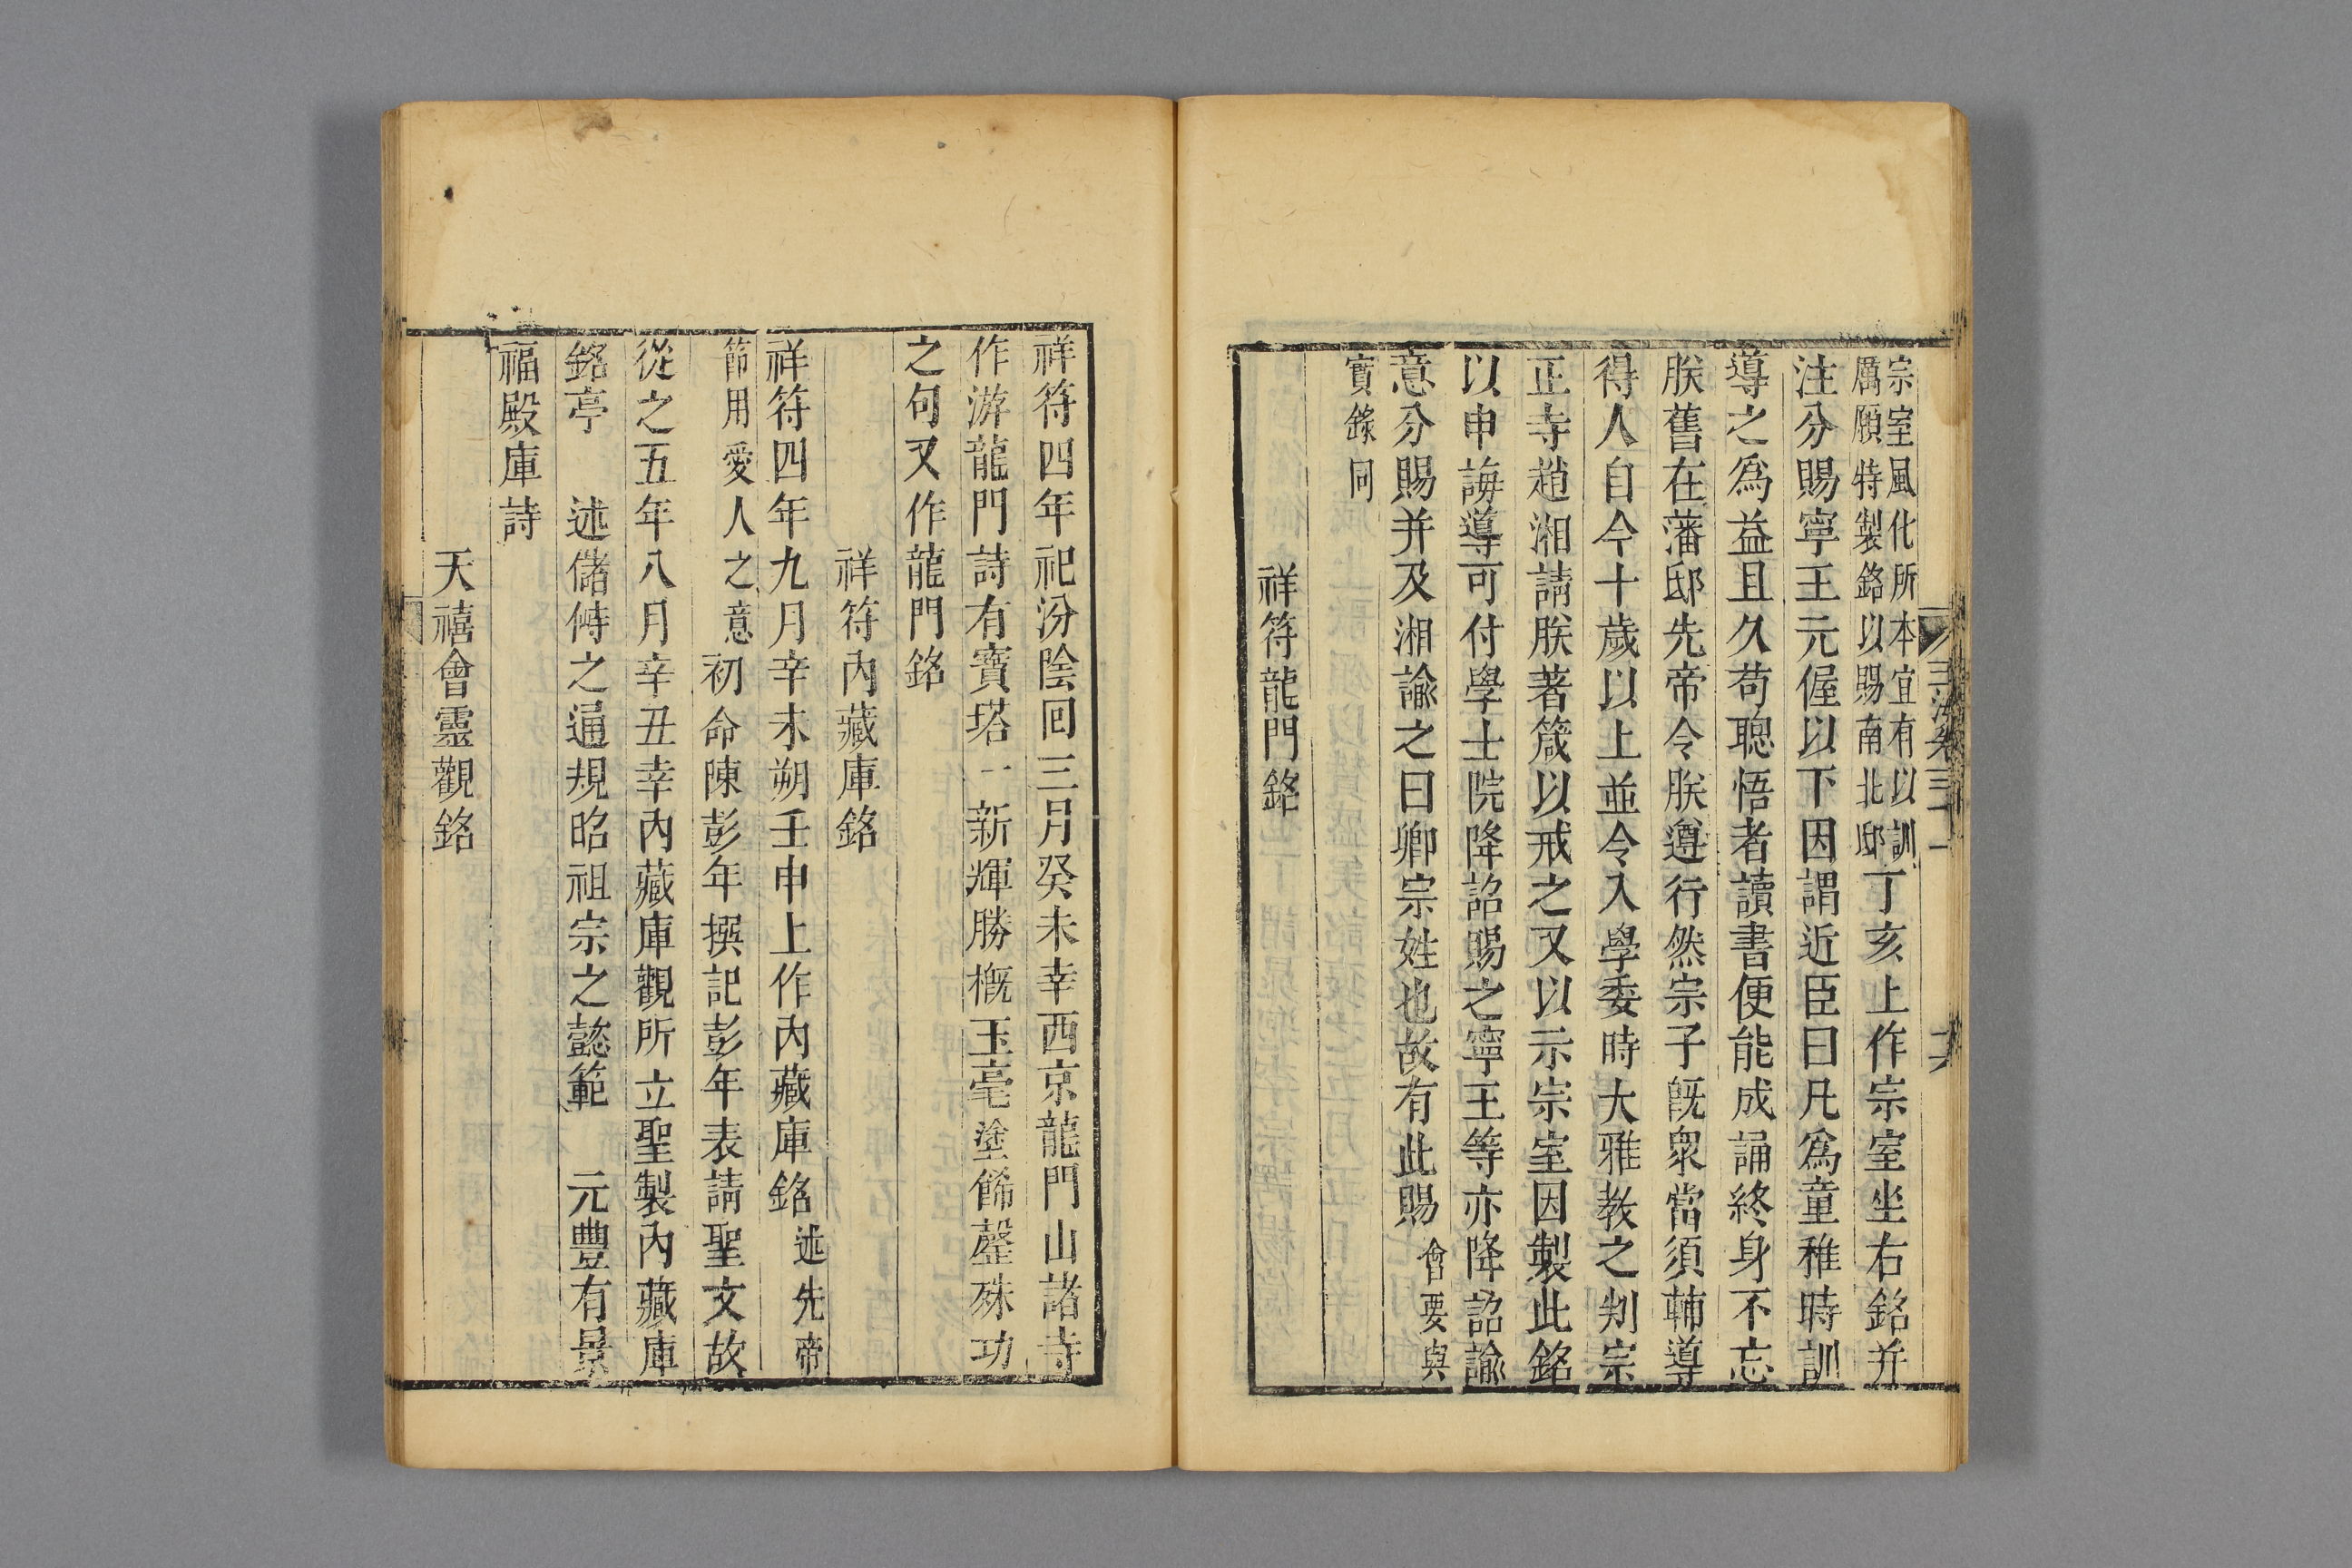 宗室風化所本宜有以訓
厲願特製銘以賜南北邸丁亥上作宗室坐右銘并
注分賜寧王元偓以下因謂近臣曰凡爲童稚時訓
導之爲益且久苟聰悟者讀書便能成誦終身不忘
朕舊在藩邸先帝令朕遵行然宗子旣衆當須輔導
得人自今十歲以上並令入學委時大雅教之判宗
正寺趙湘請朕著箴以戒之又以示宗室因製此銘
以申誨導可付學士院降詔賜之寧王等亦降詔諭
意分賜并及湘諭之曰卿宗姓也故有此賜會要與
實錄同
祥符龍門銘
祥符四年祀汾陰回三月癸未幸西京龍門山諸寺
作游龍門詩有寶塔一新輝勝槪玉毫塗餙罄殊功
之句又作龍門銘
祥符內藏庫銘
祥符四年九月辛未朔壬申上作內藏庫銘述先帝
節用愛人之意初命陳彭年撰記彭年表請聖文故
從之五年八月辛丑幸內藏庫觀所立聖製內藏庫
銘亭 述儲偫之通規昭祖宗之懿範 元豐有景
福殿庫詩
天禧會靈觀銘